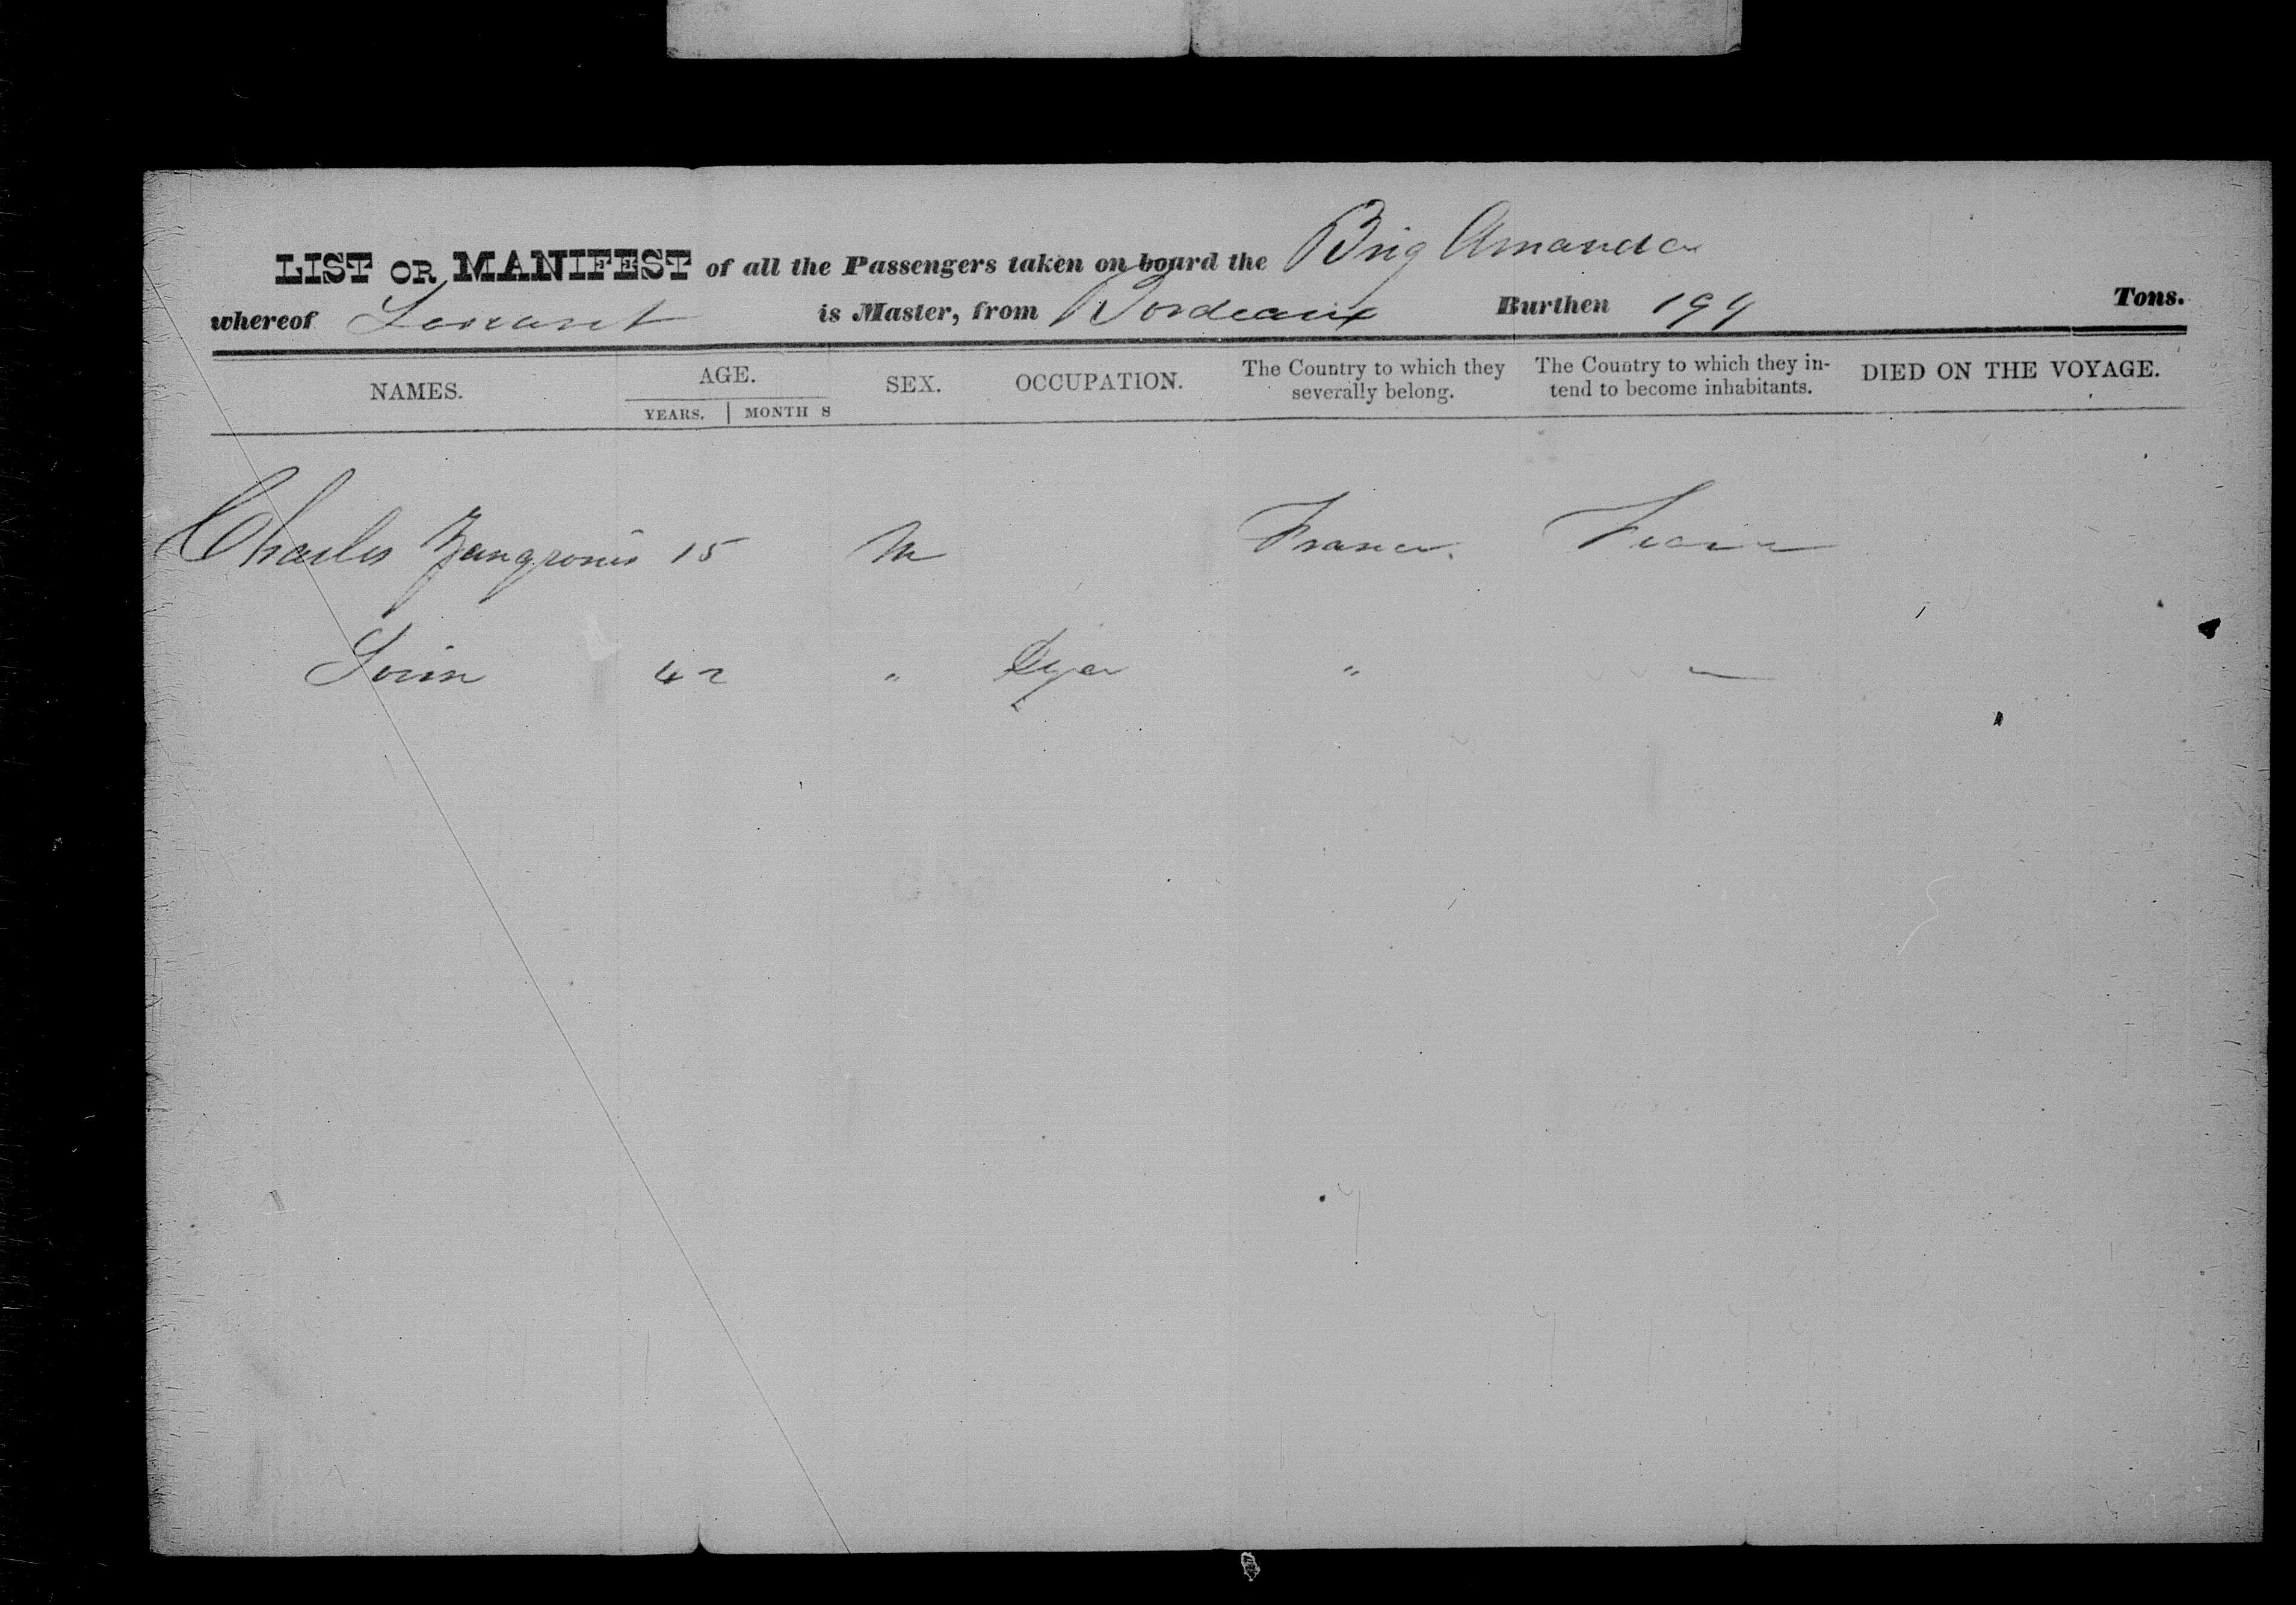 LIST OR MANIFEST of all the Passengers taken on board the Brig Amanda
whereof is Master, from Bordeaux Burthen 199 Tons.
NAMES. AGE. SEX. OCCUPATION. The Country to which they severally belong. The Country to which they in-
tend to become inhabitants. DIED ON THE VOYAGE.
YEARS. MONTH S
Charles Zangronis 15 M France. France
42 " Dyer "